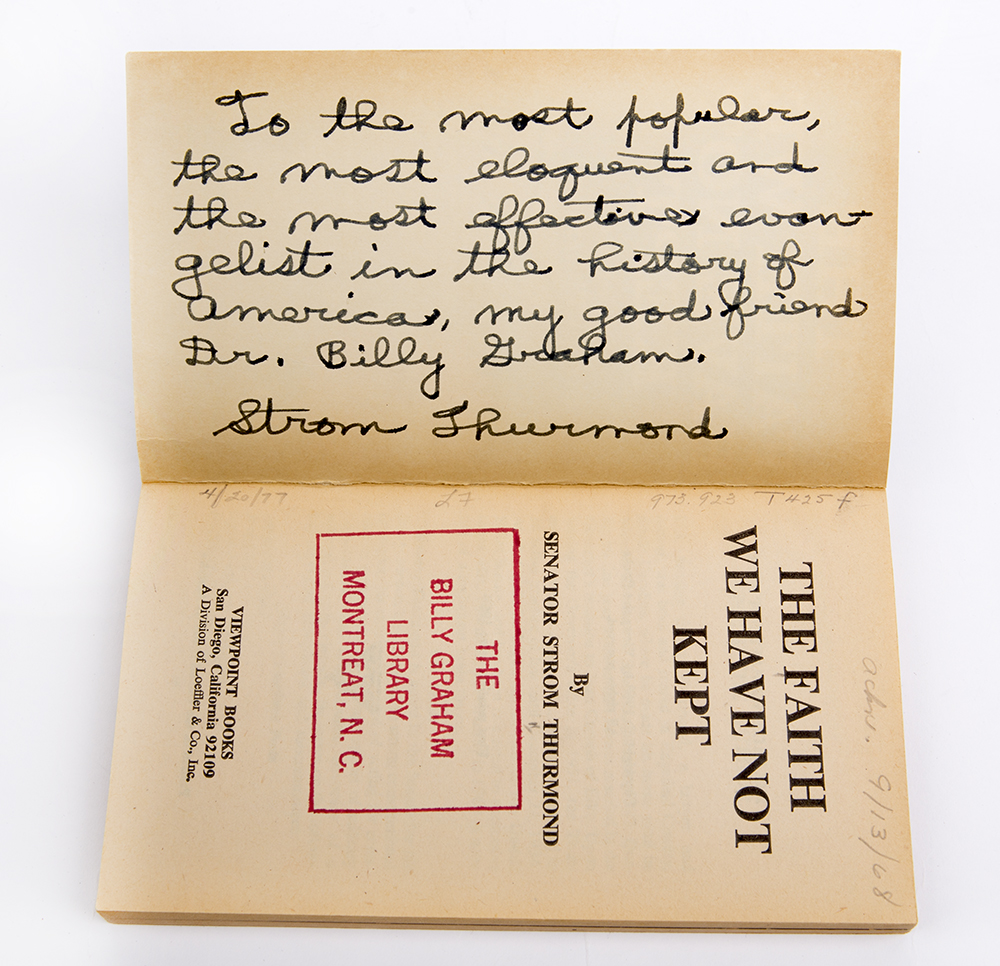 To the most popular,
the most eloquent and
the most effective evan-
gelist in the history of
America, my good friend
Dr. Billy Graham.
Strom Thurmond
4/20/77
L7
973.923 T425f
THE FAITH
WE HAVE NOT
KEPT
By
SENATOR STROM THURMOND
THE
BILLY GRAHAM
LIBRARY
MONTREAT, N. C.
VIEWPOINT BOOKS
San Diego, California 92109
A Division of Loeffler & Co., Inc.
9/13/68